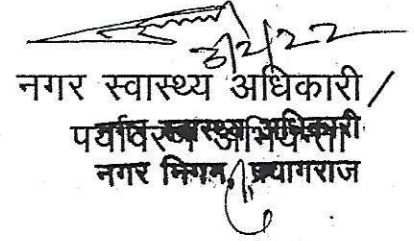 3/2/22
नगर स्वास्थ्य अधिकारी/
पर्यावरण अभियन्ता
नगर स्वास्थ्य अधिकारी
नगर निगम, प्रयागराज